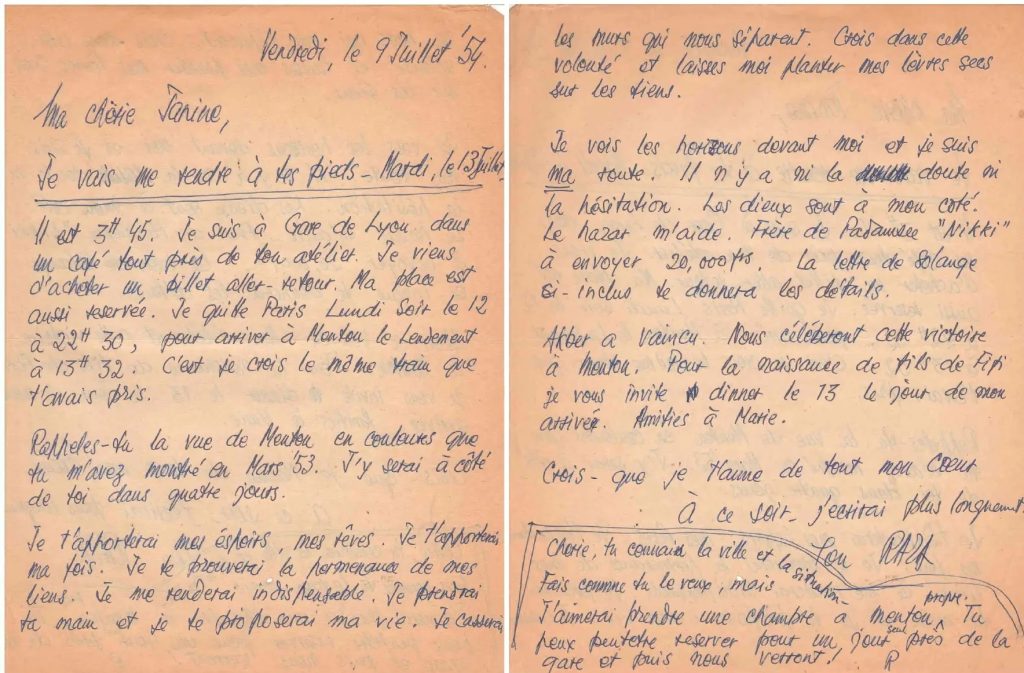 Vendredi, le 9 Juillet '54.
Ma chèrie Janine,
Je vais me rendre à tes pieds - Mardi, le 13 Juillet,
Il est 3H 45. Je suis à Gare de Lyon dans
un café tout près de ton atélier. Je viens
d'achéter un billet aller-retour. Ma place est
aussi reservée. Je quitte Paris Lundi Soir le 12
à 22H 30, pour arriver à Menton le Lendement
à 13H 32. C'est je crois le même train que
t'avais pris.
Rappeles-tu la vue de Menton en couleurs que
tu m'avez montré en Mars '53. J'y serai à côté
de toi dans quatre jours.
Je t'apporterai mes éspoirs, mes rêves. Je t'apporterai
ma fois. Je te prouverai la permenance de mes
liens. Je me renderai indispensable. Je prendrai
ta main et je te proposerai ma vie. Je casserai
les murs qui nous séparent. Crois dans cette
volonté et laisses moi planter mes lèvres secs
sur les tiens.
Je vois les horizons devant moi et je suis
ma route. Il n'y a ni la doute ni
la hésitation. Les dieux sont à mon coté.
Le hazar m'aide. Frère de Padamsee "Nikki"
à envoyer 20,000 frs. La lettre de Solange
si-inclus te donnera les détails.
Akber a vaincu. Nous céléberont cette victoire
à Menton. Pour la naissance de fils de Fifi
je vous invite à dinner le 13 le jour de mon
arrivée. Amities à Marie.
Crois - que je t'aime de tout mon cœur
À ce soir - j'ecrirai plus longuement.
Ton RAZA
Cherie, tu connais la ville et la situation -
Fais comme tu le veux, mais
J'aimerai prendre une chambre a menton propre. Tu
peux peutetre reserver pour un seul jour près de la
gare et puis nous verront!
R